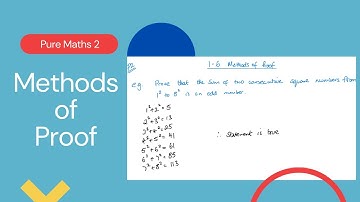 Pure Maths 2
Methods
of
Proof
1-6 Methods of Proof
e.g Prove that the sum of two consecutive square numbers from
1² to 8² is an odd number.
1²+2²=5
2²+3²=13
3²+4²=25
4²+5²=41
5²+6²=61
6²+7²=85
7²+8²=113
∴ statement is true